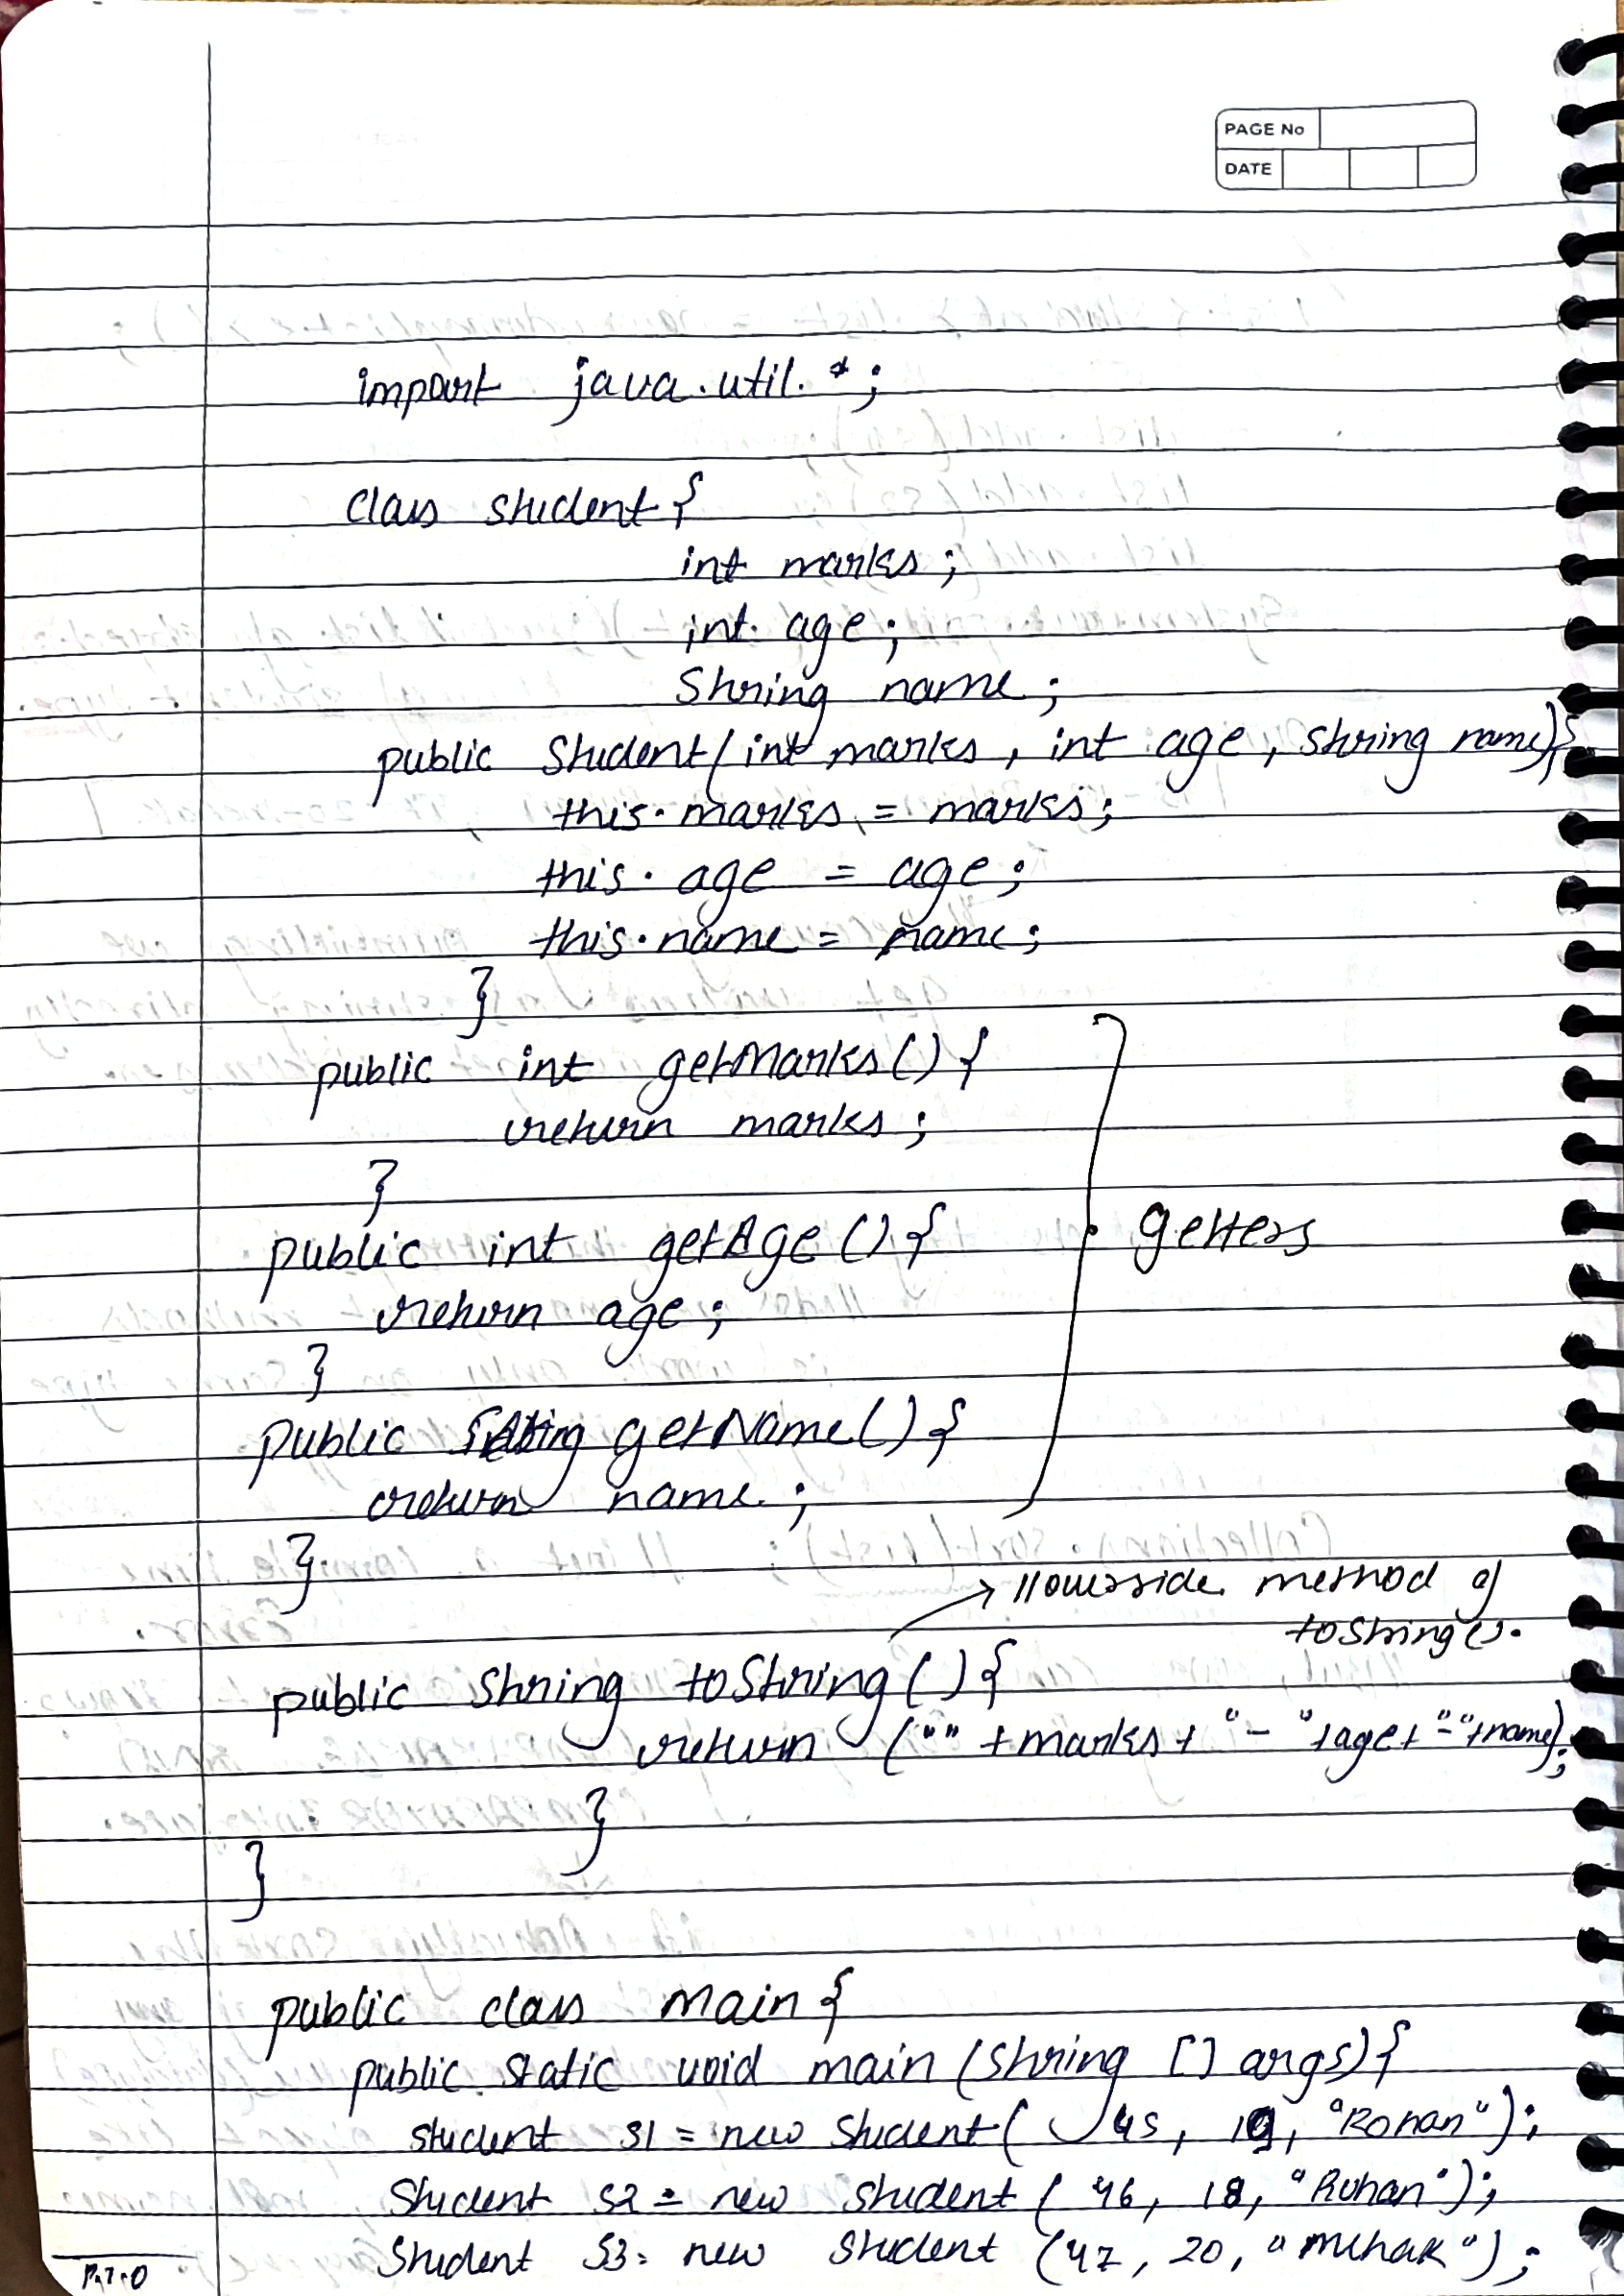 PAGE No
DATE
import java.util.*;
class student {
int marks;
int age;
String name;
public Student(int marks, int age, string name){
this.marks = marks;
this.age = age;
this.name = name;
}
public int getMarks() {
return marks;
}
public int getAge() {
return age;
}
public String getName() {
return name;
}
getters
// override method of
toString().
public String toString() {
return ("" + marks + "-" + age + "-" + name);
}
}
public class main {
public static void main (string [] args) {
student s1 = new Student( 45, 19, "Rohan");
Student s2 = new student ( 46, 18, "Ruhan");
Student s3 = new student (47, 20, "mehak");
P.T.O